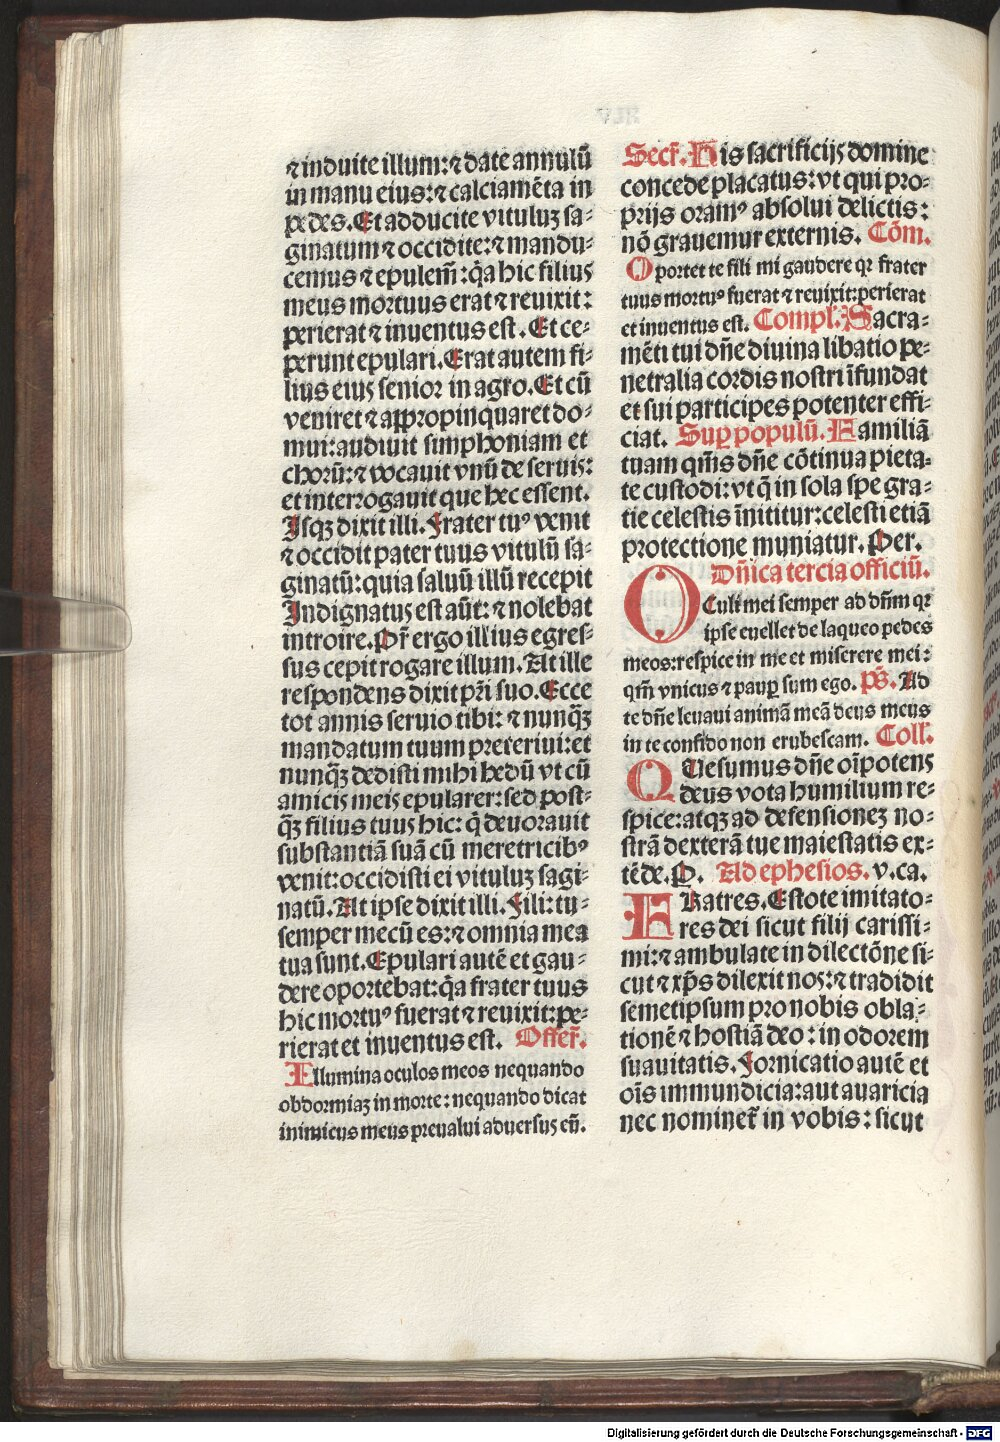 ⁊ induite illum: ⁊ date annulū
in manu eius: ⁊ calciamēta in
pedes. Et adducite vituluꝫ sa⸗
ginatum ⁊ occidite: ⁊ mandu⸗
cemus ⁊ epulem̄: q̄a hic filius
meus mortuus erat ⁊ reuixit:
perierat ⁊ inuentus est. Et ce⸗
perunt epulari. Erat autem fi⸗
lius eius senior in agro. Et cū
veniret ⁊ appropinquaret do⸗
mui: audiuit simphoniam et
chorū: ⁊ vocauit vnū de seruis:
et interrogauit que hec essent.
Isqꝫ dixit illi. Frater tuꝰ venit
⁊ occidit pater tuus vitulū sa⸗
ginatū: quia saluū illū recepit
Indignatus est aūt: ⁊ nolebat
introire. Pr̄ ergo illius egres⸗
sus cepit rogare illum. At ille
respondens dixit pr̄i suo. Ecce
tot annis seruio tibi: ⁊ nunqꝫ
mandatum tuum preteriui: et
nunqꝫ dedisti mihi hedū vt cū
amicis meis epularer: sed post⸗
qꝫ filius tuus hic: q̄ deuorauit
substantiā suā cū meretricibꝰ
venit: occidisti ei vituluꝫ sagi⸗
natū. At ipse dixit illi. Fili: tu⸗
semper mecū es: ⁊ omnia mea
tua sunt. Epulari autē et gau⸗
dere oportebat: q̄a frater tuus
hic mortuꝰ fuerat ⁊ reuixit: pe⸗
rierat et inuentus est. Offer̄.
Illumina oculos meos nequando
obdormiaꝫ in morte: nequando dicat
inimicus meus preualui aduersus eū.
Secr̄. His sacrificijs domine
concede placatus: vt qui pro⸗
prijs oramꝰ absolui delictis:
nō grauemur externis. Cōm.
Oportet te fili mi gaudere qꝛ frater
tuus mortuꝰ fuerat ⁊ reuixit: perierat
et inuentus est. Compl̄. Sacra⸗
mēti tui dn̄e diuina libatio pe⸗
netralia cordis nostri īfundat
et sui participes potenter effi⸗
ciat. Suꝑ populū. Familiā
tuam qm̄s dn̄e cōtinua pieta⸗
te custodi: vt q̄ in sola spe gra⸗
tie celestis īnititur: celesti etiā
protectione muniatur. Per.
Dn̄ica tercia officiū.
OCuli mei semper ad dn̄m qꝛ
ipse euellet de laqueo pedes
meos: respice in me et miserere mei:
qm̄ vnicus ⁊ pauꝑ sum ego. Ps̄. Ad
te dn̄e leuaui animā meā deus meus
in te confido non erubescam. Coll̄.
QUesumus dn̄e oīpotens
deus vota humilium re⸗
spice: atqꝫ ad defensioneꝫ no⸗
strā dexterā tue maiestatis ex⸗
tēde. P. Ad ephesios. v. ca.
FRatres. Estote imitato⸗
res dei sicut filij carissi⸗
mi: ⁊ ambulate in dilectōne si⸗
cut ⁊ xp̄s dilexit nos: ⁊ tradidit
semetipsum pro nobis obla⸗
tionē ⁊ hostiā deo: in odorem
suauitatis. Fornicatio autē et
oīs immundicia: aut auaricia
nec nominet̄ in vobis: sicut
Digitalisierung gefördert durch die Deutsche Forschungsgemeinschaft - DFG